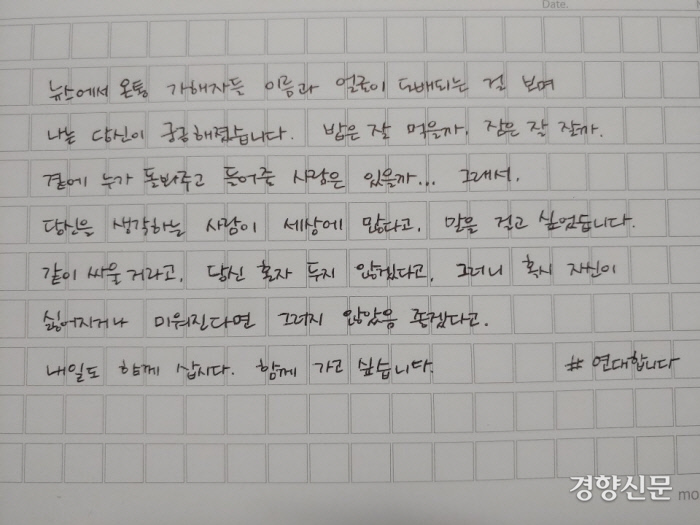 Date.
뉴스에서 온통 가해자들 이름과 얼굴이 도배되는 걸 보며
나는 당신이 궁금해졌습니다. 밥은 잘 먹을까. 잠은 잘 잘까.
곁에 누가 돌봐주고 들어줄 사람은 있을까... 그래서.
당신을 생각하는 사람이 세상에 많다고. 말을 걸고 싶었습니다.
같이 싸울거라고. 당신 혼자 두지 않겠다고. 그러니 혹시 자신이
싫어지거나 미워진다면 그러지 않았음 좋겠다고.
내일도 함께 삽시다. 함께 가고 싶습니다. # 연대합니다
경향신문
mo